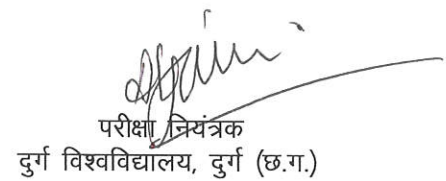 परीक्षा नियंत्रक
दुर्ग विश्वविद्यालय, दुर्ग (छ.ग.)